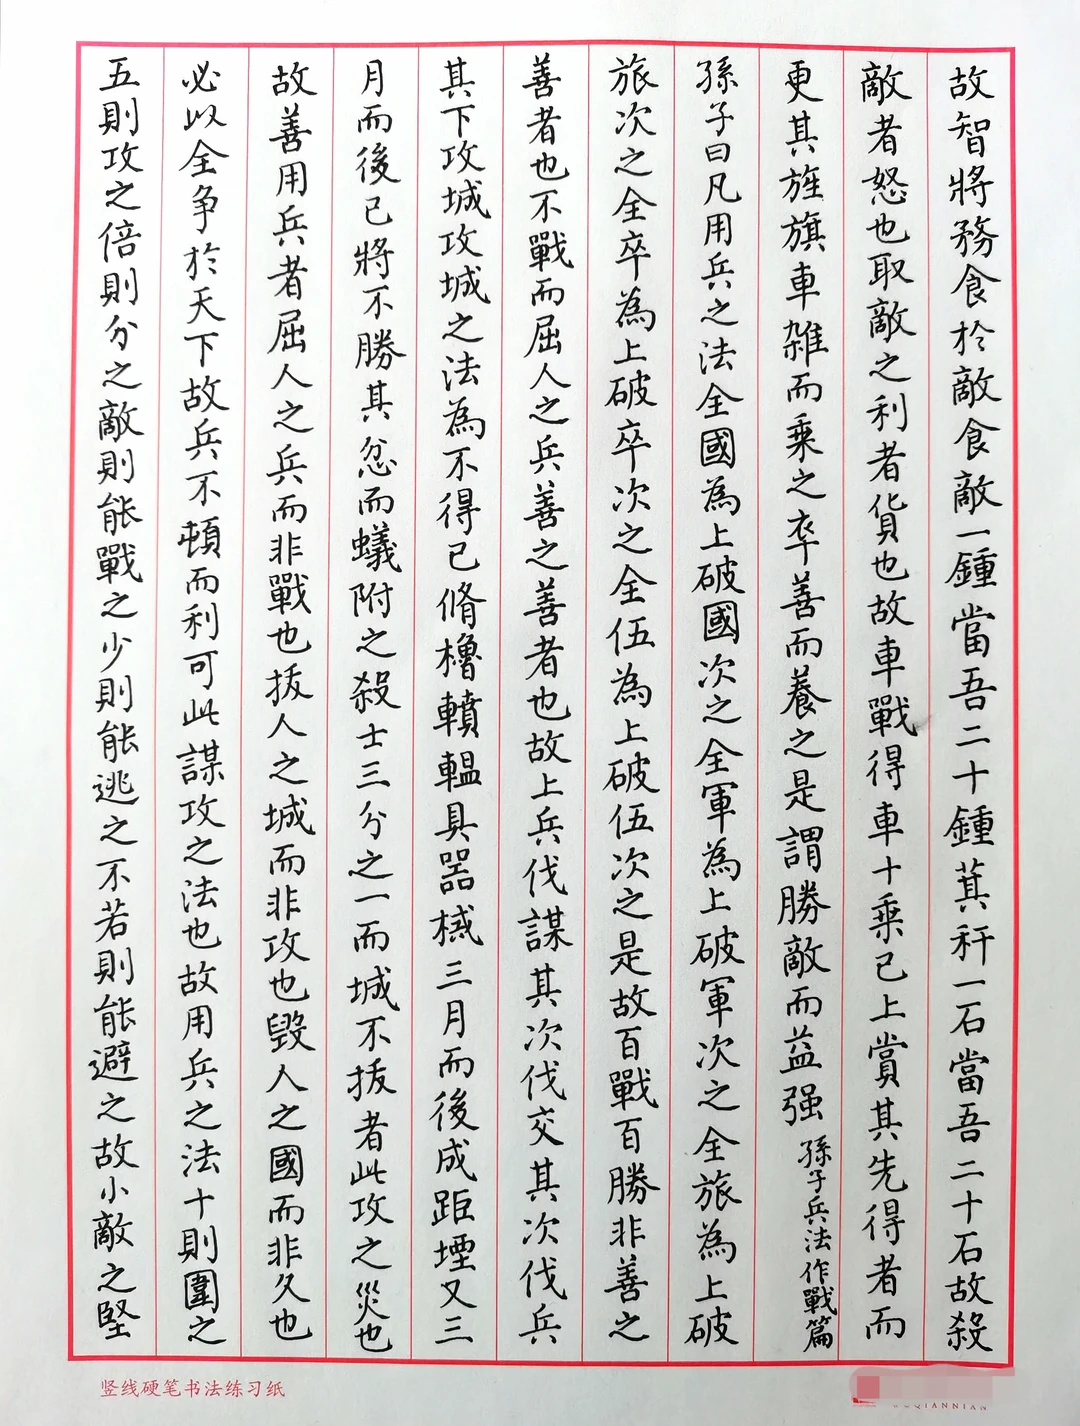 故智將務食於敵食敵一鍾當吾二十鍾萁秆一石當吾二十石故殺
敵者怒也取敵之利者貨也故車戰得車十乘已上賞其先得者而
更其旌旗車雜而乘之卒善而養之是謂勝敵而益强 孫子兵法作戰篇
孫子曰凡用兵之法全國為上破國次之全軍為上破軍次之全旅為上破
旅次之全卒為上破卒次之全伍為上破伍次之是故百戰百勝非善之
善者也不戰而屈人之兵善之善者也故上兵伐謀其次伐交其次伐兵
其下攻城攻城之法為不得已脩櫓轒轀具器械三月而後成距堙又三
月而後已將不勝其忿而蟻附之殺士三分之一而城不拔者此攻之災也
故善用兵者屈人之兵而非戰也拔人之城而非攻也毀人之國而非久也
必以全争於天下故兵不頓而利可此謀攻之法也故用兵之法十則圍之
五則攻之倍則分之敵則能戰之少則能逃之不若則能避之故小敵之堅
竖线硬笔书法练习纸
QIANNIAN